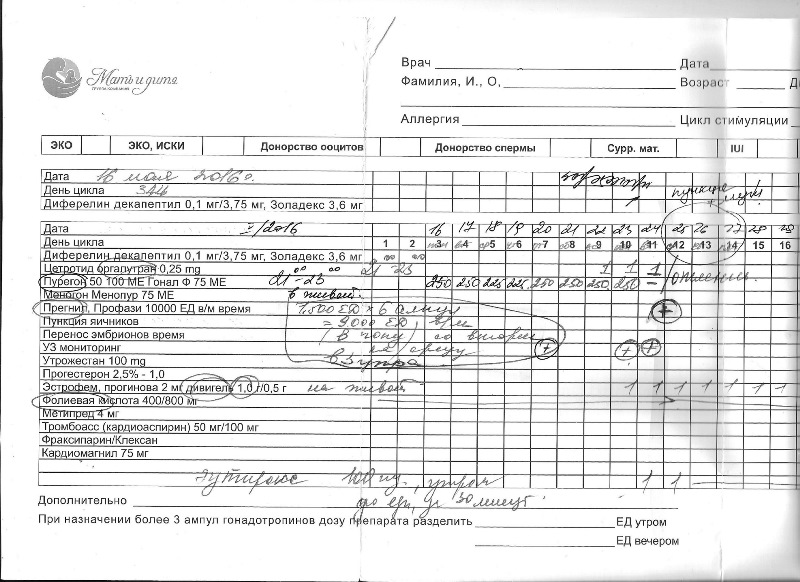 Мать и дитя
ГРУППА КОМПАНИЙ
Врач Дата
Фамилия, И., О, Возраст
Аллергия Цикл стимуляции
ЭКО ЭКО, ИСКИ Донорство ооцитов Донорство спермы Сурр. мат. IUI
Дата 16 мая 2016г.
День цикла
Диферелин декапептил 0,1 мг/3,75 мг, Золадекс 3,6 мг
Дата V/2016 16 17 18 19 20 21 22 23 24 25 26 27 28 29
День цикла 1 2 3 4 5 6 7 8 9 10 11 12 13 14 15 16
Диферелин декапептил 0,1 мг/3,75 мг, Золадекс 3,6 мг
Цетротид оргалутран 0,25 mg 21-23 1 1 1
Пурегон 50 100 МЕ Гонал Ф 75 МЕ 21-23 250 250 225 225 250 250 250 250 –
Меногон Менопур 75 МЕ в живот
Прегнил, Профази 10000 ЕД в/м время 1.500 ЕД x 6 ампул
Пункция яичников = 9000 ЕД, в/м
Перенос эмбрионов время (в попу)
УЗ мониторинг + + +
Утрожестан 100 mg
Прогестерон 2,5% - 1,0
Эстрофем, прогинова 2 мг дивигель 1,0 г/0,5 г на живот 1 1 1 1 1 1 1
Фолиевая кислота 400/800 мг
Метипред 4 мг
Тромбоасс (кардиоаспирин) 50 мг/100 мг
Фраксипарин/Клексан
Кардиомагнил 75 мг
Эутирокс 100 утром 1 1
Дополнительно до еды, за 30 минут
При назначении более 3 ампул гонадотропинов дозу препарата разделить ЕД утром
ЕД вечером